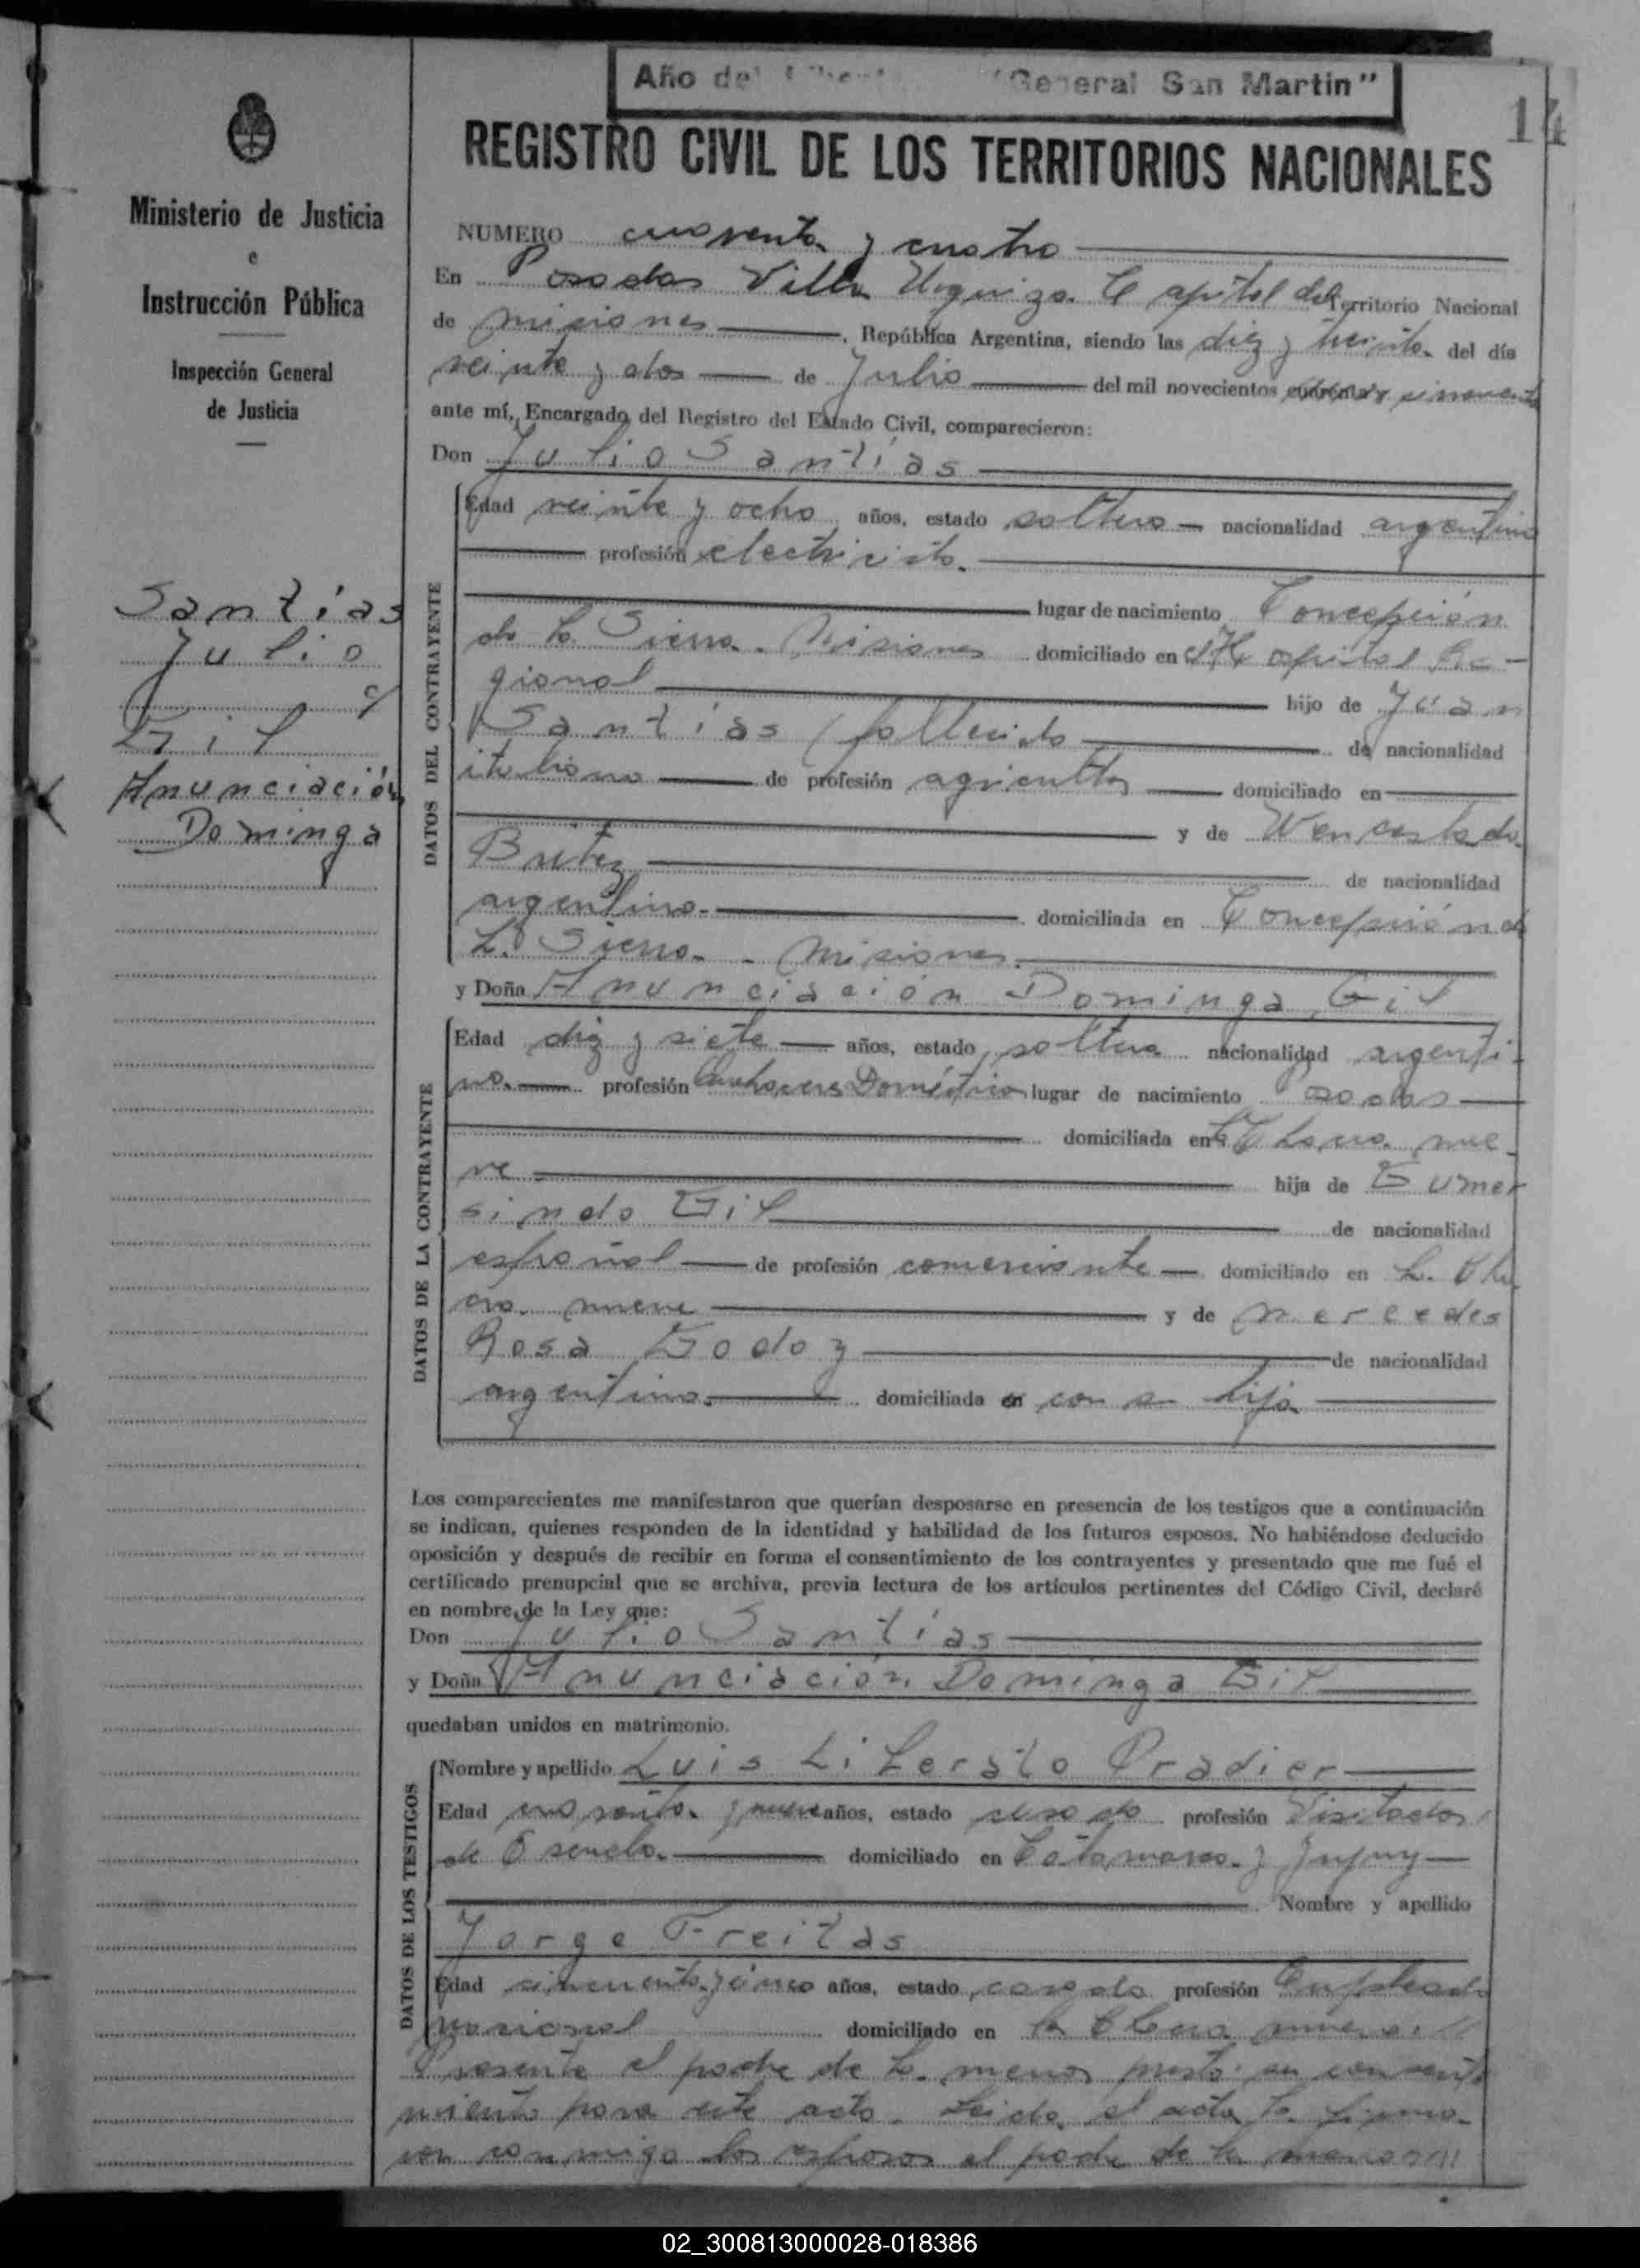 Año del "General San Martin"
14
REGISTRO CIVIL DE LOS TERRITORIOS NACIONALES
Ministerio de Justicia
e
Instrucción Pública
Inspección General
de Justicia
NUMERO cuarenta y cuatro
En Posadas Villa Urquiza Capital del Territorio Nacional
de misiones, República Argentina, siendo las diez y treinta del día
veinte y dos de Julio del mil novecientos cuarenta y cincuenta
ante mí, Encargado del Registro del Estado Civil, comparecieron:
Don Julio Santías
Santías
Julio
c/
Gil
Anunciación
Dominga
DATOS DEL CONTRAYENTE
Edad veinte y ocho años, estado soltero nacionalidad argentino
profesión electricista
lugar de nacimiento Concepción
de la Sierra. Misiones domiciliado en Hospital Re-
gional hijo de Juan
Santías fallecido de nacionalidad
italiana de profesión agricultor domiciliado en
y de Wenceslada
Britez de nacionalidad
argentina domiciliada en Concepción de
La Sierra - Misiones
y Doña Anunciación Dominga Gil
DATOS DE LA CONTRAYENTE
Edad diez y siete años, estado soltera nacionalidad argenti-
na profesión Quehaceres Domésticos lugar de nacimiento Posadas
domiciliada en Chacra nue-
ve hija de Gumer
sindo Gil de nacionalidad
español de profesión comerciante domiciliado en La Cha
cra nueve y de Mercedes
Rosa Godoy de nacionalidad
argentina domiciliada en con su hija
Los comparecientes me manifestaron que querían desposarse en presencia de los testigos que a continuación
se indican, quienes responden de la identidad y habilidad de los futuros esposos. No habiéndose deducido
oposición y después de recibir en forma el consentimiento de los contrayentes y presentado que me fué el
certificado prenupcial que se archiva, previa lectura de los artículos pertinentes del Código Civil, declaré
en nombre de la Ley que:
Don Julio Santías
y Doña Anunciación Dominga Gil
quedaban unidos en matrimonio.
DATOS DE LOS TESTIGOS
Nombre y apellido Luis Liberato Pradier
Edad cuarenta y nueve años, estado casado profesión Visitador
de Escuela domiciliado en Catamarca y Jujuy
Nombre y apellido
Jorge Freitas
Edad cincuenta y cinco años, estado casado profesión Empleado
nacional domiciliado en la Chacra nueve
Presente el padre de la menor prestó su consenti
miento para este acto. Leida el acta la firma-
ron conmigo los esposos el padre de la menor
02_300813000028-018386